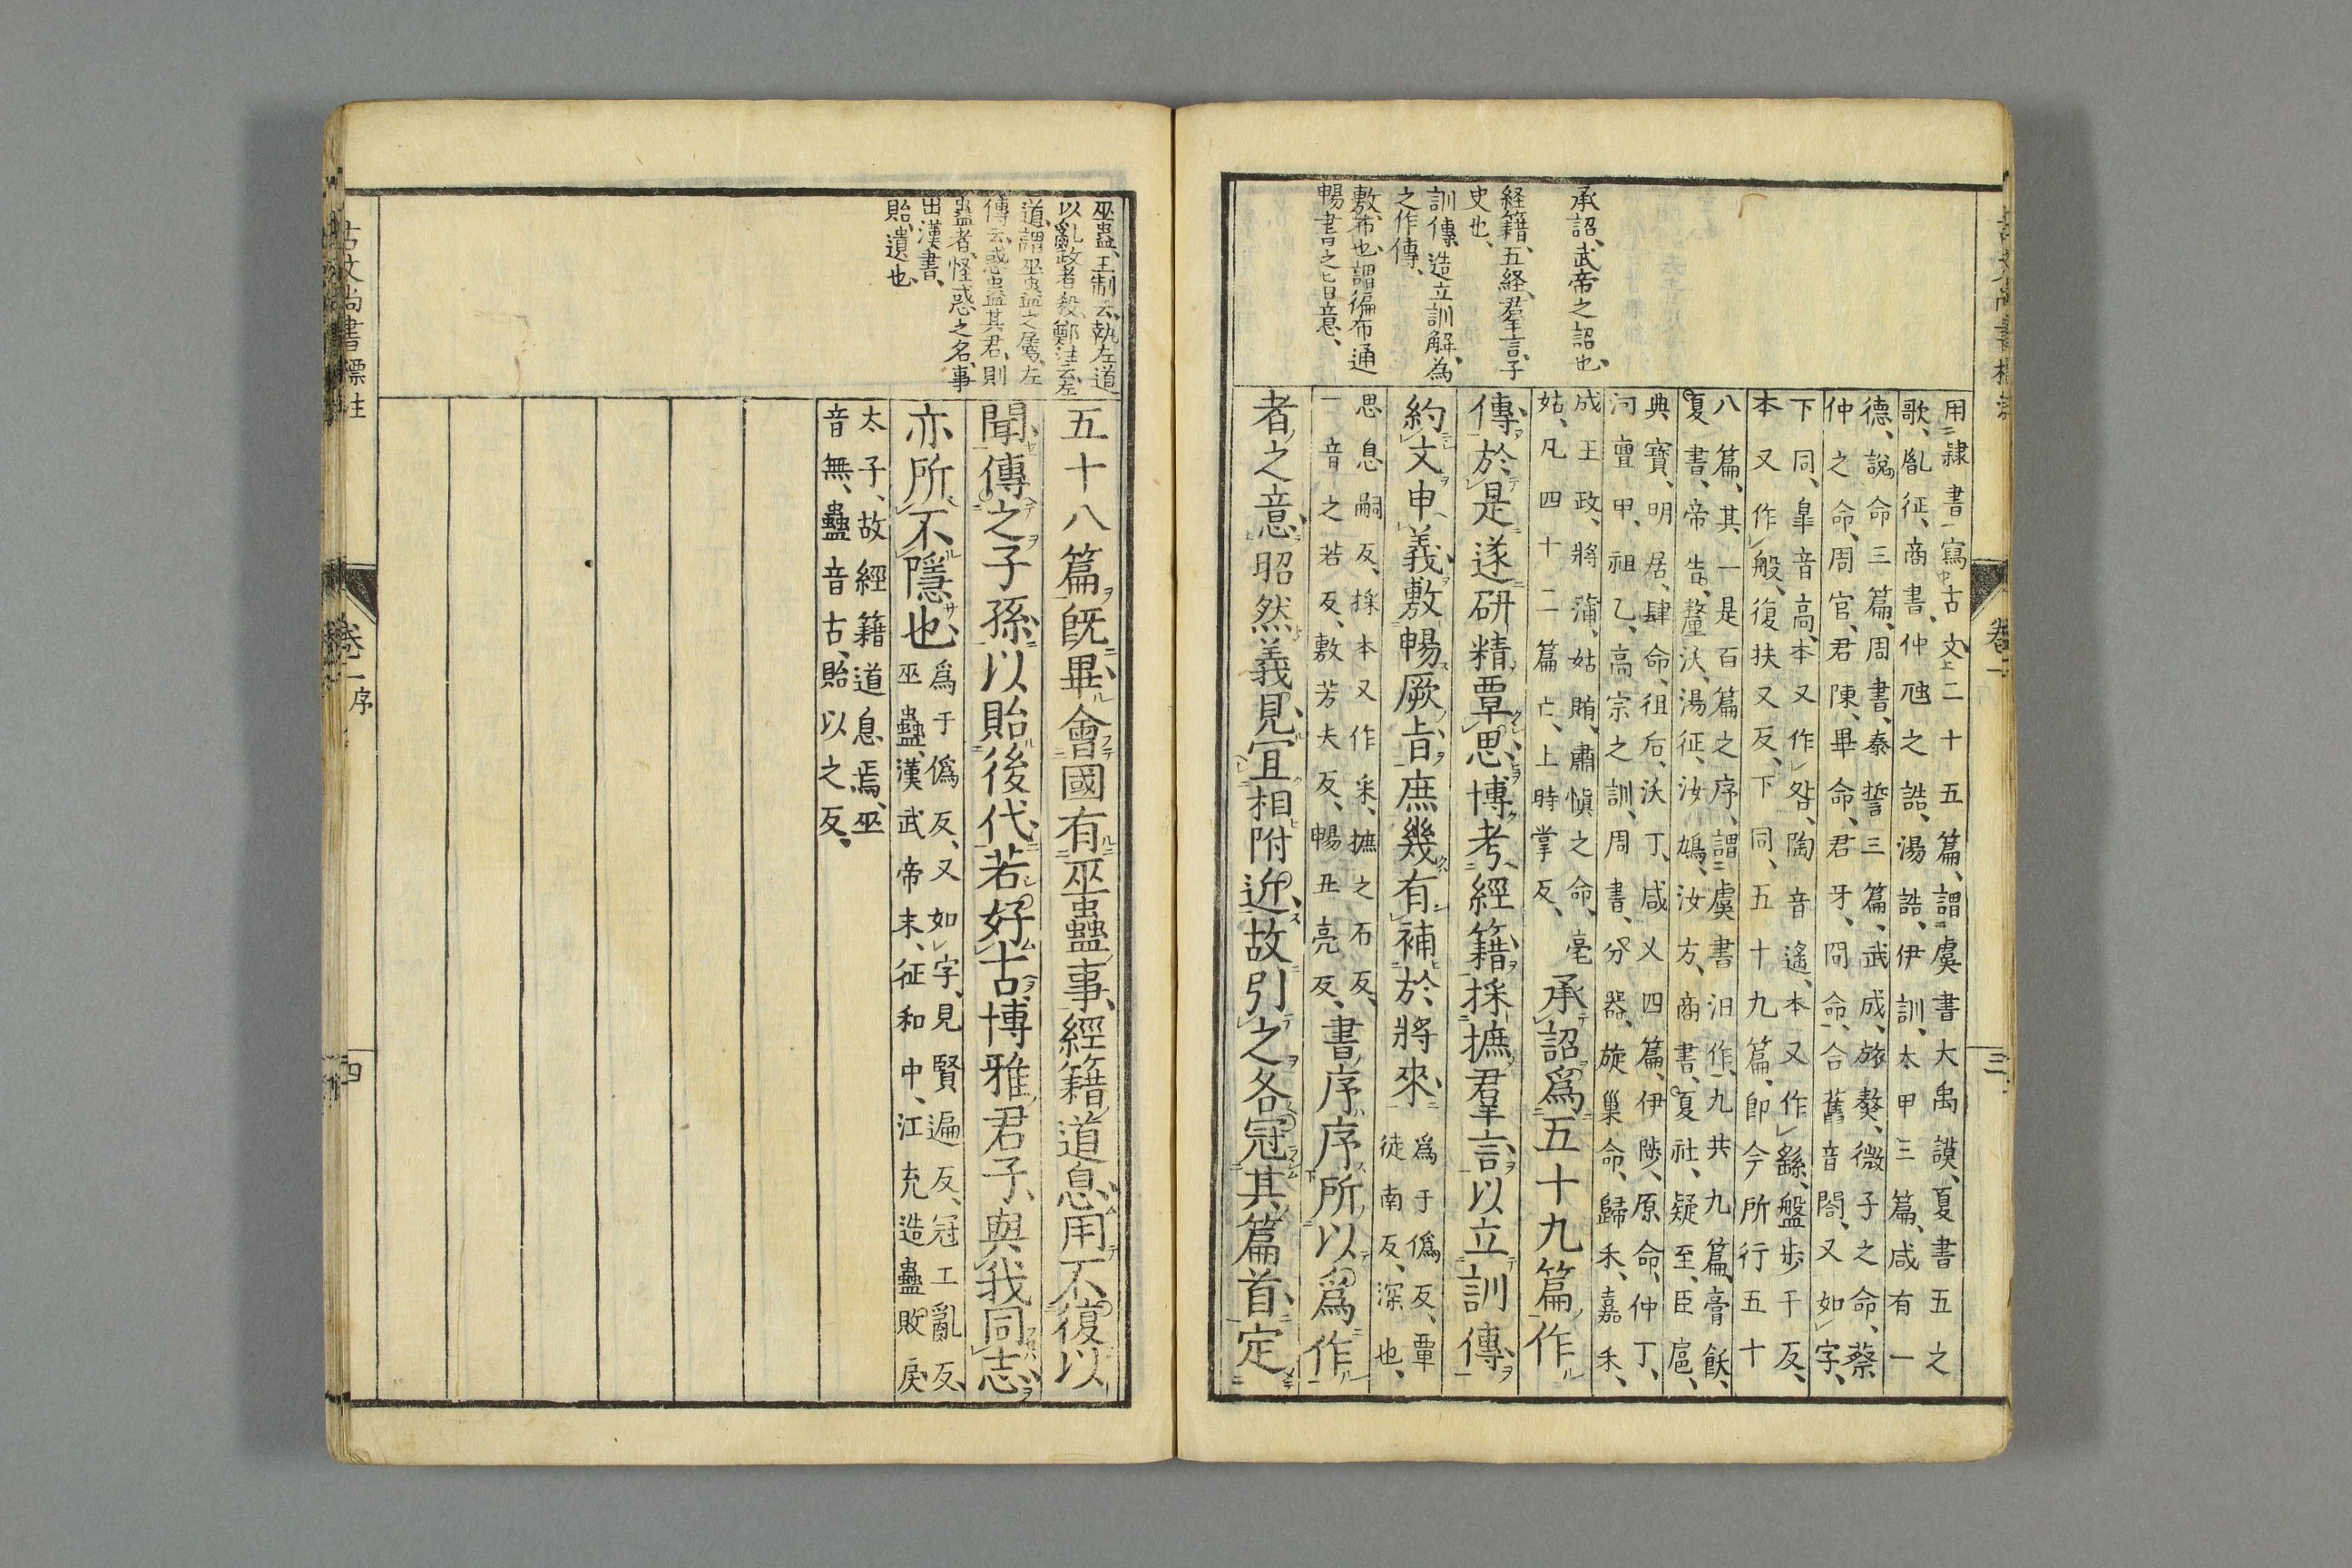 承詔、武帝之詔也、
経籍、五経、羣言、子
史也、
訓傳、造立訓解、為
之作傳、
敷、布也、謂徧布通
暢書之旨意、
用隷書寫古文、二十五篇、謂虞書大禹謨、夏書五之
歌、胤征、商書、仲虺之誥、湯誥、伊訓、太甲三篇、咸有一
德、說命三篇、周書、泰誓三篇、武成、旅獒、微子之命、蔡
仲之命、周官、君陳、畢命、君牙、冏命、合舊音閤、又如字、
下同、皐音高、本又作咎、陶音遙、本又作繇、盤步干反、
本又作般、復扶又反、下同、五十九篇、即今所行五十
八篇、其一是百篇之序、謂虞書汨作、九共九篇、膏飫、
夏書、帝告、釐沃、湯征、汝鳩、汝方、商書、夏社、疑至、臣扈、
典寶、明居、肆命、徂后、沃丁、咸乂四篇、伊陟、原命、仲丁、
河亶甲、祖乙、高宗之訓、周書、分器、旋巢命、歸禾、嘉禾、
成王政、將蒲姑、賄肅愼之命、亳
姑、凡四十二篇亡、上時掌反、
承詔爲五十九篇作
傳、於是遂研精覃思、博考經籍、採摭羣言、以立訓傳、
約文申義、敷暢厥旨、庶幾有補於將來、
爲于僞反、覃
徒南反、深也、
思息嗣反、採本又作采、摭之石反、
一音之若反、敷芳夫反、暢丑亮反、
書序序所以爲作
者之意、昭然義見、宜相附近、故引之各冠其篇首、定
古文尚書標註
卷一
三
巫蠱、王制云、執左道
以亂政者殺、鄭注云、左
道、謂巫蠱之屬、左
傳云、惑蠱其君、則
蠱者、怪惑之名、事
出漢書、
貽、遺也、
五十八篇、既畢、會國有巫蠱事、經籍道息、用不復以
聞、傳之子孫、以貽後代、若好古博雅君子、與我同志、
亦所不隱也、
爲于僞反、又如字、見賢遍反、冠工亂反、
巫蠱、漢武帝末、征和中、江充造蠱敗戾
太子、故經籍道息焉、巫
音無、蠱音古、貽以之反、
古文尚書標註
卷一 序
四